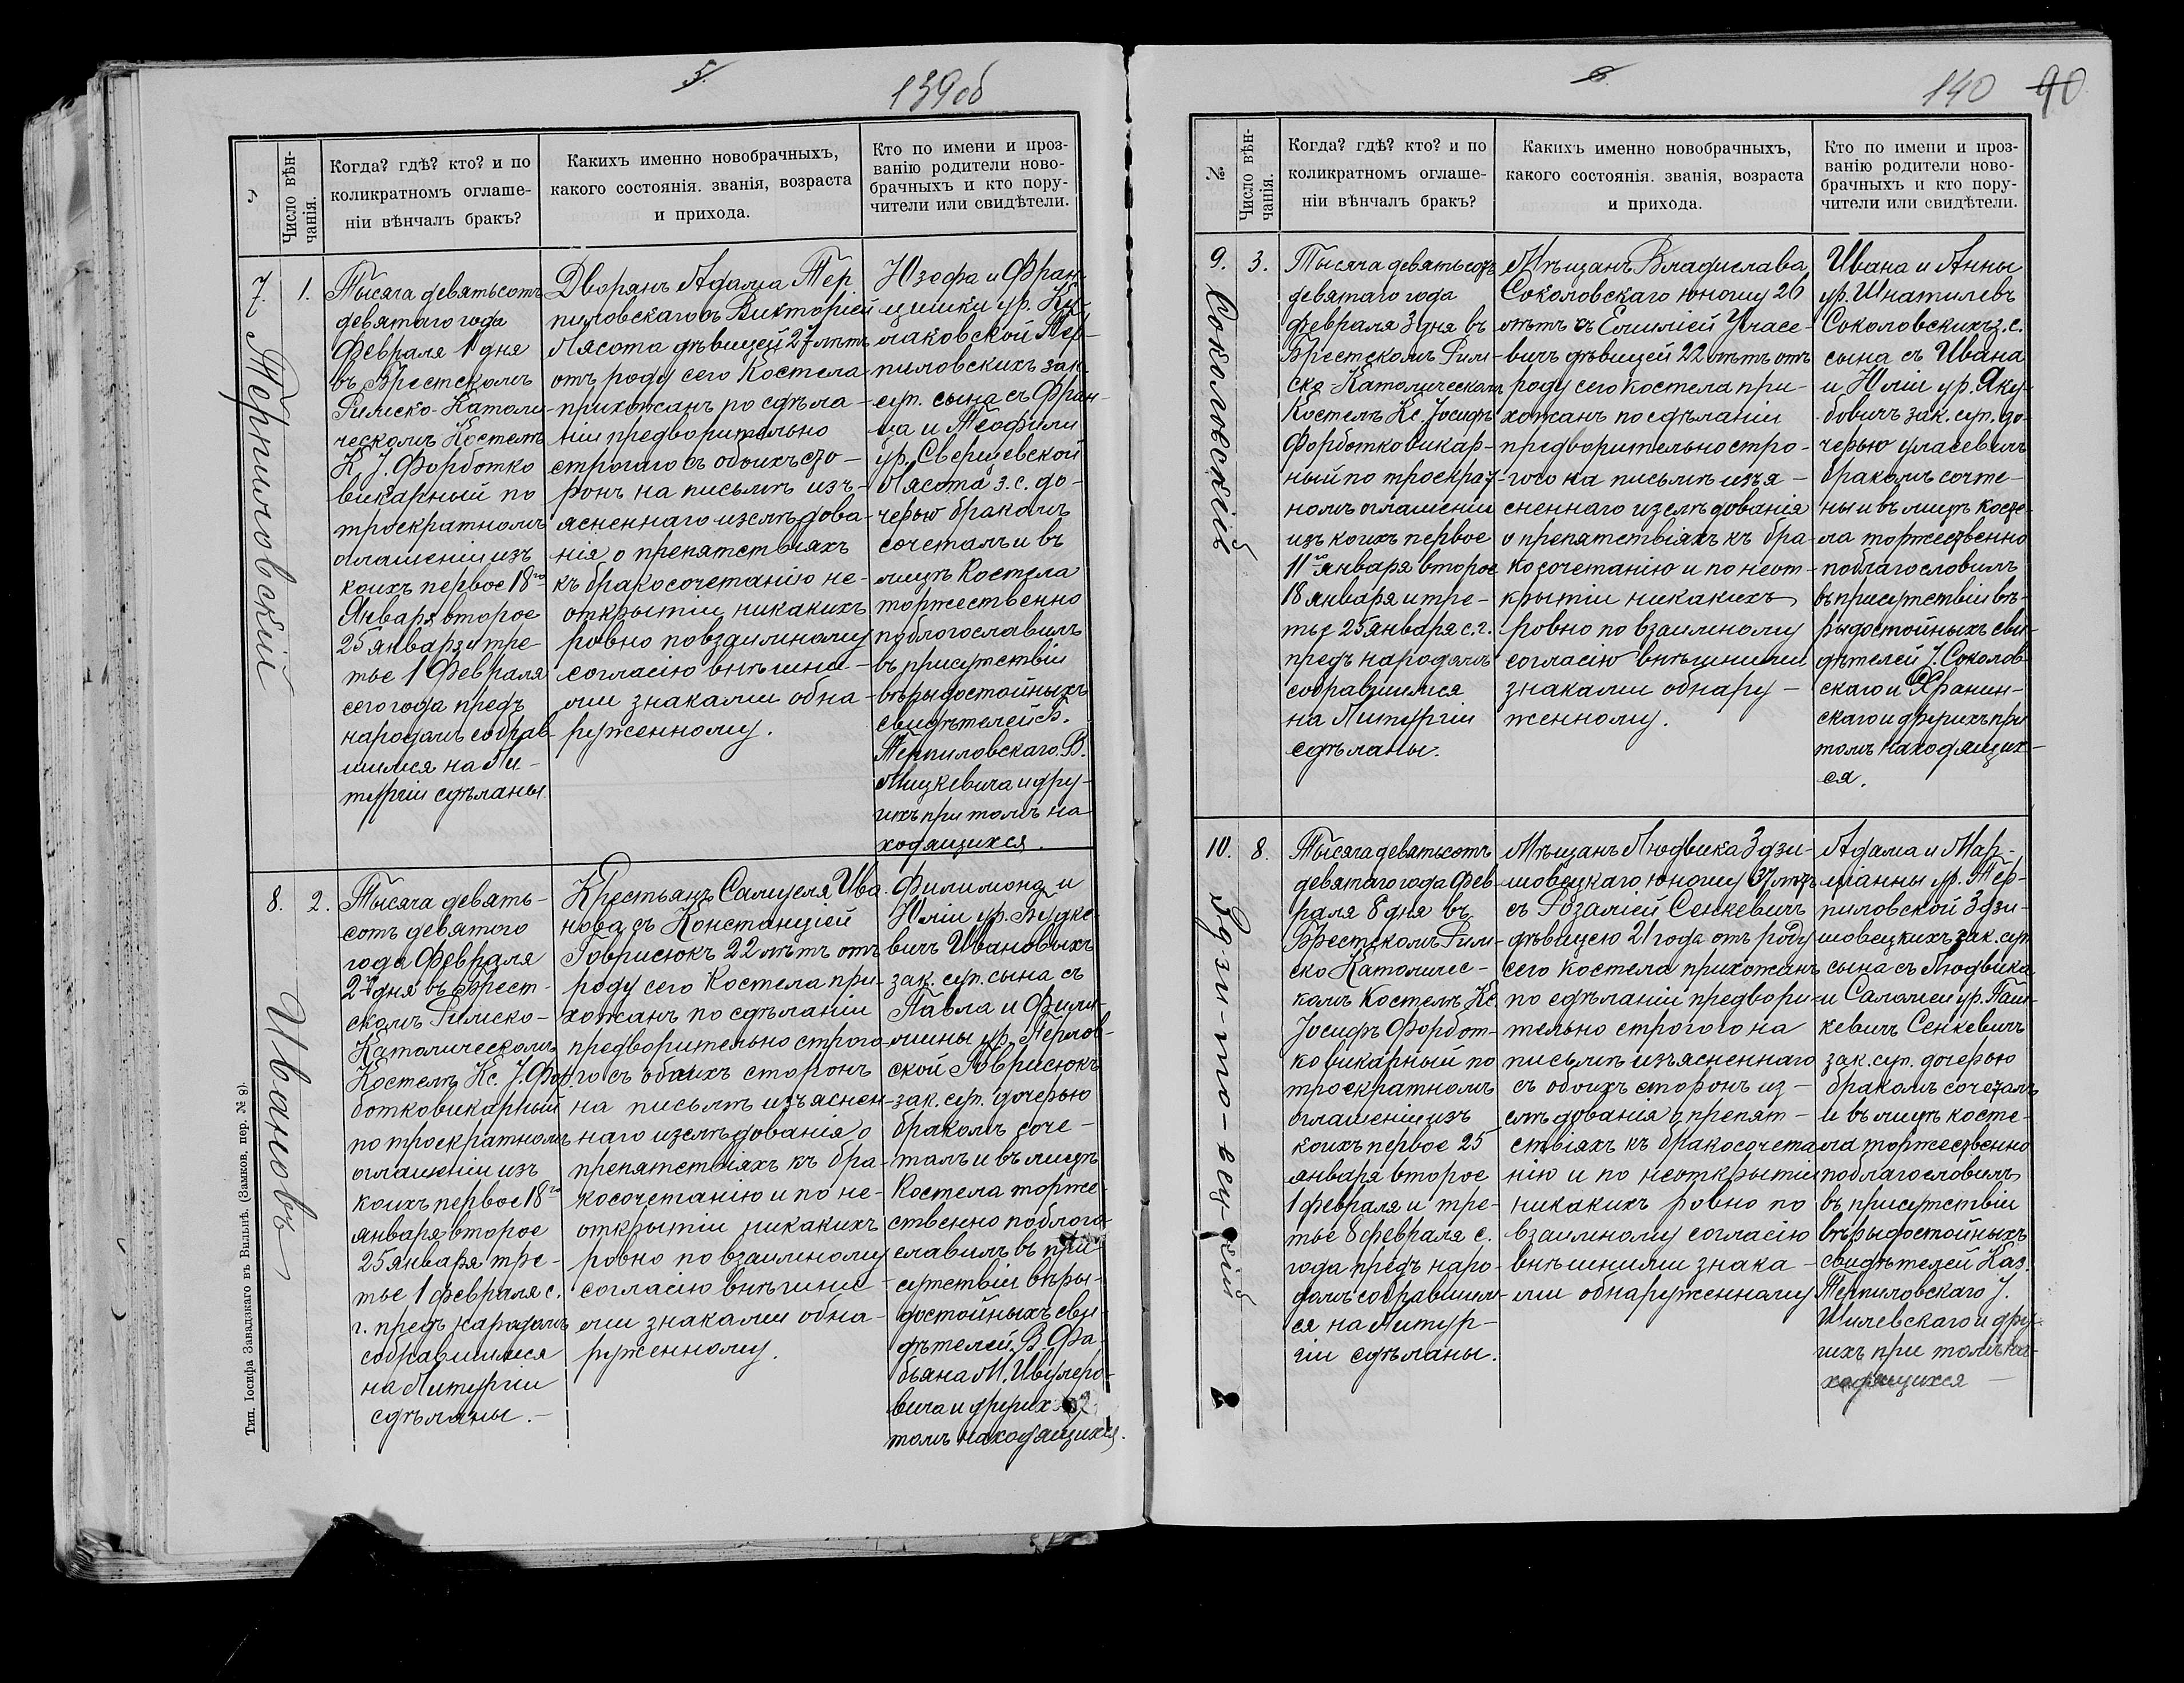 5.
139об
№
Число вѣн-
чанія.
Когда? гдѣ? кто? и по
коликратномъ оглаше-
ніи вѣнчалъ бракъ?
Какихъ именно новобрачныхъ,
какого состоянія. званія, возраста
и прихода.
Кто по имени и проз-
ванію родители ново-
брачныхъ и кто пору-
чители или свидѣтели.
7.
Терпиловскій
1.
Тысяча девятьсотъ
девятаго года
Февраля 1 дня
въ Брестскомъ
Римско-Католи-
ческомъ Костелѣ
К. І. Форботко
викарный по
троекратномъ
оглашеніи изъ
коихъ первое 18го
Января второе
25 января и тре-
тье 1 Февраля
сего года предъ
народомъ собрав-
шимся на Ли-
тургіи сдѣланы
Дворянъ Адама Тер-
пиловскаго съ Викторіей
Лясота дѣвицей 27 лѣтъ
отъ роду сего Костела
прихожанъ по сдѣла-
ніи предворительно
строгаго съ обоихъ сто-
ронъ на письмѣ изъ-
ясненнаго изслѣдова-
нія о препятствіяхъ
къ бракосочетанію не-
открытіи никакихъ
ровно по взаимному
согласію внѣшни-
ми знаками обна-
руженному.
Юзефа и Фран-
цишки ур.
маковской Тер-
пиловскихъ зак.
суп. сына съ Фран-
ца и Теофили
ур. Сверщевской
Лясота з. с. до-
черью бракомъ
сочеталъ и въ
лицѣ Костела
торжественно
поблогославилъ
въ присутствіи
вѣрыдостойныхъ
свидѣтелей Б.
Терпиловскаго В.
Мицкевича и дру-
гихъ при томъ на
ходящихся.
8.
Ивановъ
2.
Тысяча девять-
сотъ девятого
года Февраля
2го дня въ Брест-
скомъ Римско-
Католическомъ
Костелѣ Кс. І. Фор-
ботко викарный
по троекратномъ
оглашеніи изъ
коихъ первое 18го
января второе
25 января тре-
тье 1 февраля с.
г. предъ народомъ
собравшимся
на Литургіи
сдѣланы.-
Крестьянъ Самуеля Ива-
нова съ Констанціей
Говрисюкъ 22 лѣтъ отъ
роду сего Костела при-
хожанъ по сдѣланіи
предворительно строго-
го съ обоихъ сторонъ
на письмѣ изъяснен-
наго изслѣдованія о
препятствіяхъ къ бра-
косочетанію и по не-
открытіи никакихъ
ровно по взаимному
согласію внѣшни-
ми знаками обна-
руженному.
Филимона и
Юліи ур. Будке-
вичъ Ивановыхъ
зак. суп. сына съ
Павла и Фили-
мины ур. Перлов-
ской Говрисюкъ
зак. суп. дочерью
бракомъ соче-
талъ и въ лицѣ
Костела торже-
ственно поблого-
славилъ въ при-
сутствіи вѣры-
достойныхъ сви-
дѣтелей В. Фа-
бьяна М.
вича и другихъ
томъ находящихся.
Тип. Іосифа Завадзкаго въ Вильнѣ. (Замков. пер. № 9).
6.
140
90
№
Число вѣн-
чанія.
Когда? гдѣ? кто? и по
коликратномъ оглаше-
ніи вѣнчалъ бракъ?
Какихъ именно новобрачныхъ,
какого состоянія. званія, возраста
и прихода.
Кто по имени и проз-
ванію родители ново-
брачныхъ и кто пору-
чители или свидѣтели.
9.
Соколовскій
3.
Тысяча девятьсотъ
девятаго года
февраля 3 дня въ
Брестскомъ Рим-
ско-Католическомъ
Костелѣ Кс. Іосифъ
Форботко викар-
ный по троекрат-
номъ оглашеніи
изъ коихъ первое
11го января второе
18 января и тре-
тье 25 января с. г.
предъ народомъ
собравшимся
на Литургіи
сдѣланы.
Мѣщанъ Владислава
Соколовскаго юношу 26
лѣтъ съ Емиліей Уласе-
вичъ дѣвицей 22 лѣтъ отъ
роду сего костела при-
хожанъ по сдѣланіи
предворительно стро-
гого на письмѣ изъя-
сненнаго изслѣдованія
о препятствіяхъ къ бра-
косочетанію и по неот-
крытіи никакихъ
ровно по взаимному
согласію внѣшними
знаками обнару-
женному.
Ивана и Анны
ур. Игнатилевъ
Соколовскихъ з. с.
сына съ Ивана
и Юліи ур. Яку-
бовичъ зак. суп. до-
черью
бракомъ сочте-
ны и въ лицѣ косте-
ла торжественно
поблагословилъ
въ присутствіи вѣ-
рыдостойныхъ сви-
дѣтелей І. Соколов-
скаго и
скаго и другихъ при
томъ находящих-
ся.
10.
Здзи-мо-вец-кій
8.
Тысяча девятьсотъ
девятаго года Фев-
раля 8 дня въ
Брестскомъ Рим-
ско Католичес-
комъ Костелѣ Кс
Іосифъ Форбот-
ко викарный по
троекратномъ
оглашеніи изъ
коихъ первое 25
января второе
1 февраля и тре-
тье 8 февраля с.
года предъ наро-
домъ собравшим-
ся на Литур-
гіи сдѣланы.
Мѣщанъ Людвика Здзи-
мовецкаго юношу 37 лѣтъ
съ Розаліей Сенкевичъ
дѣвицею 21 года отъ роду
сего костела прихожанъ
по сдѣланіи предвори-
тельно строгого на
письмѣ изъясненнаго
съ обоихъ сторонъ из-
слѣдованія о препят-
ствіяхъ къ бракосочета-
нію и по неоткрытіи
никакихъ ровно по
взаимному согласію
внѣшними знака-
ми обнаруженному
Адама и Мар-
цианны ур. Тер-
пиловской Здзи-
мовецкихъ зак. суп.
сына съ Людвика
и Саломеи ур. Паш-
кевичъ Сенкевичъ
зак. суп. дочерью
бракомъ сочеталъ
и въ лицѣ косте-
ла торжественно
поблагословилъ
въ присутствіи
вѣрыдостойныхъ
свидѣтелей Каз.
Терпиловскаго І.
Шилевскаго и дру-
гихъ при томъ на-
ходящихся